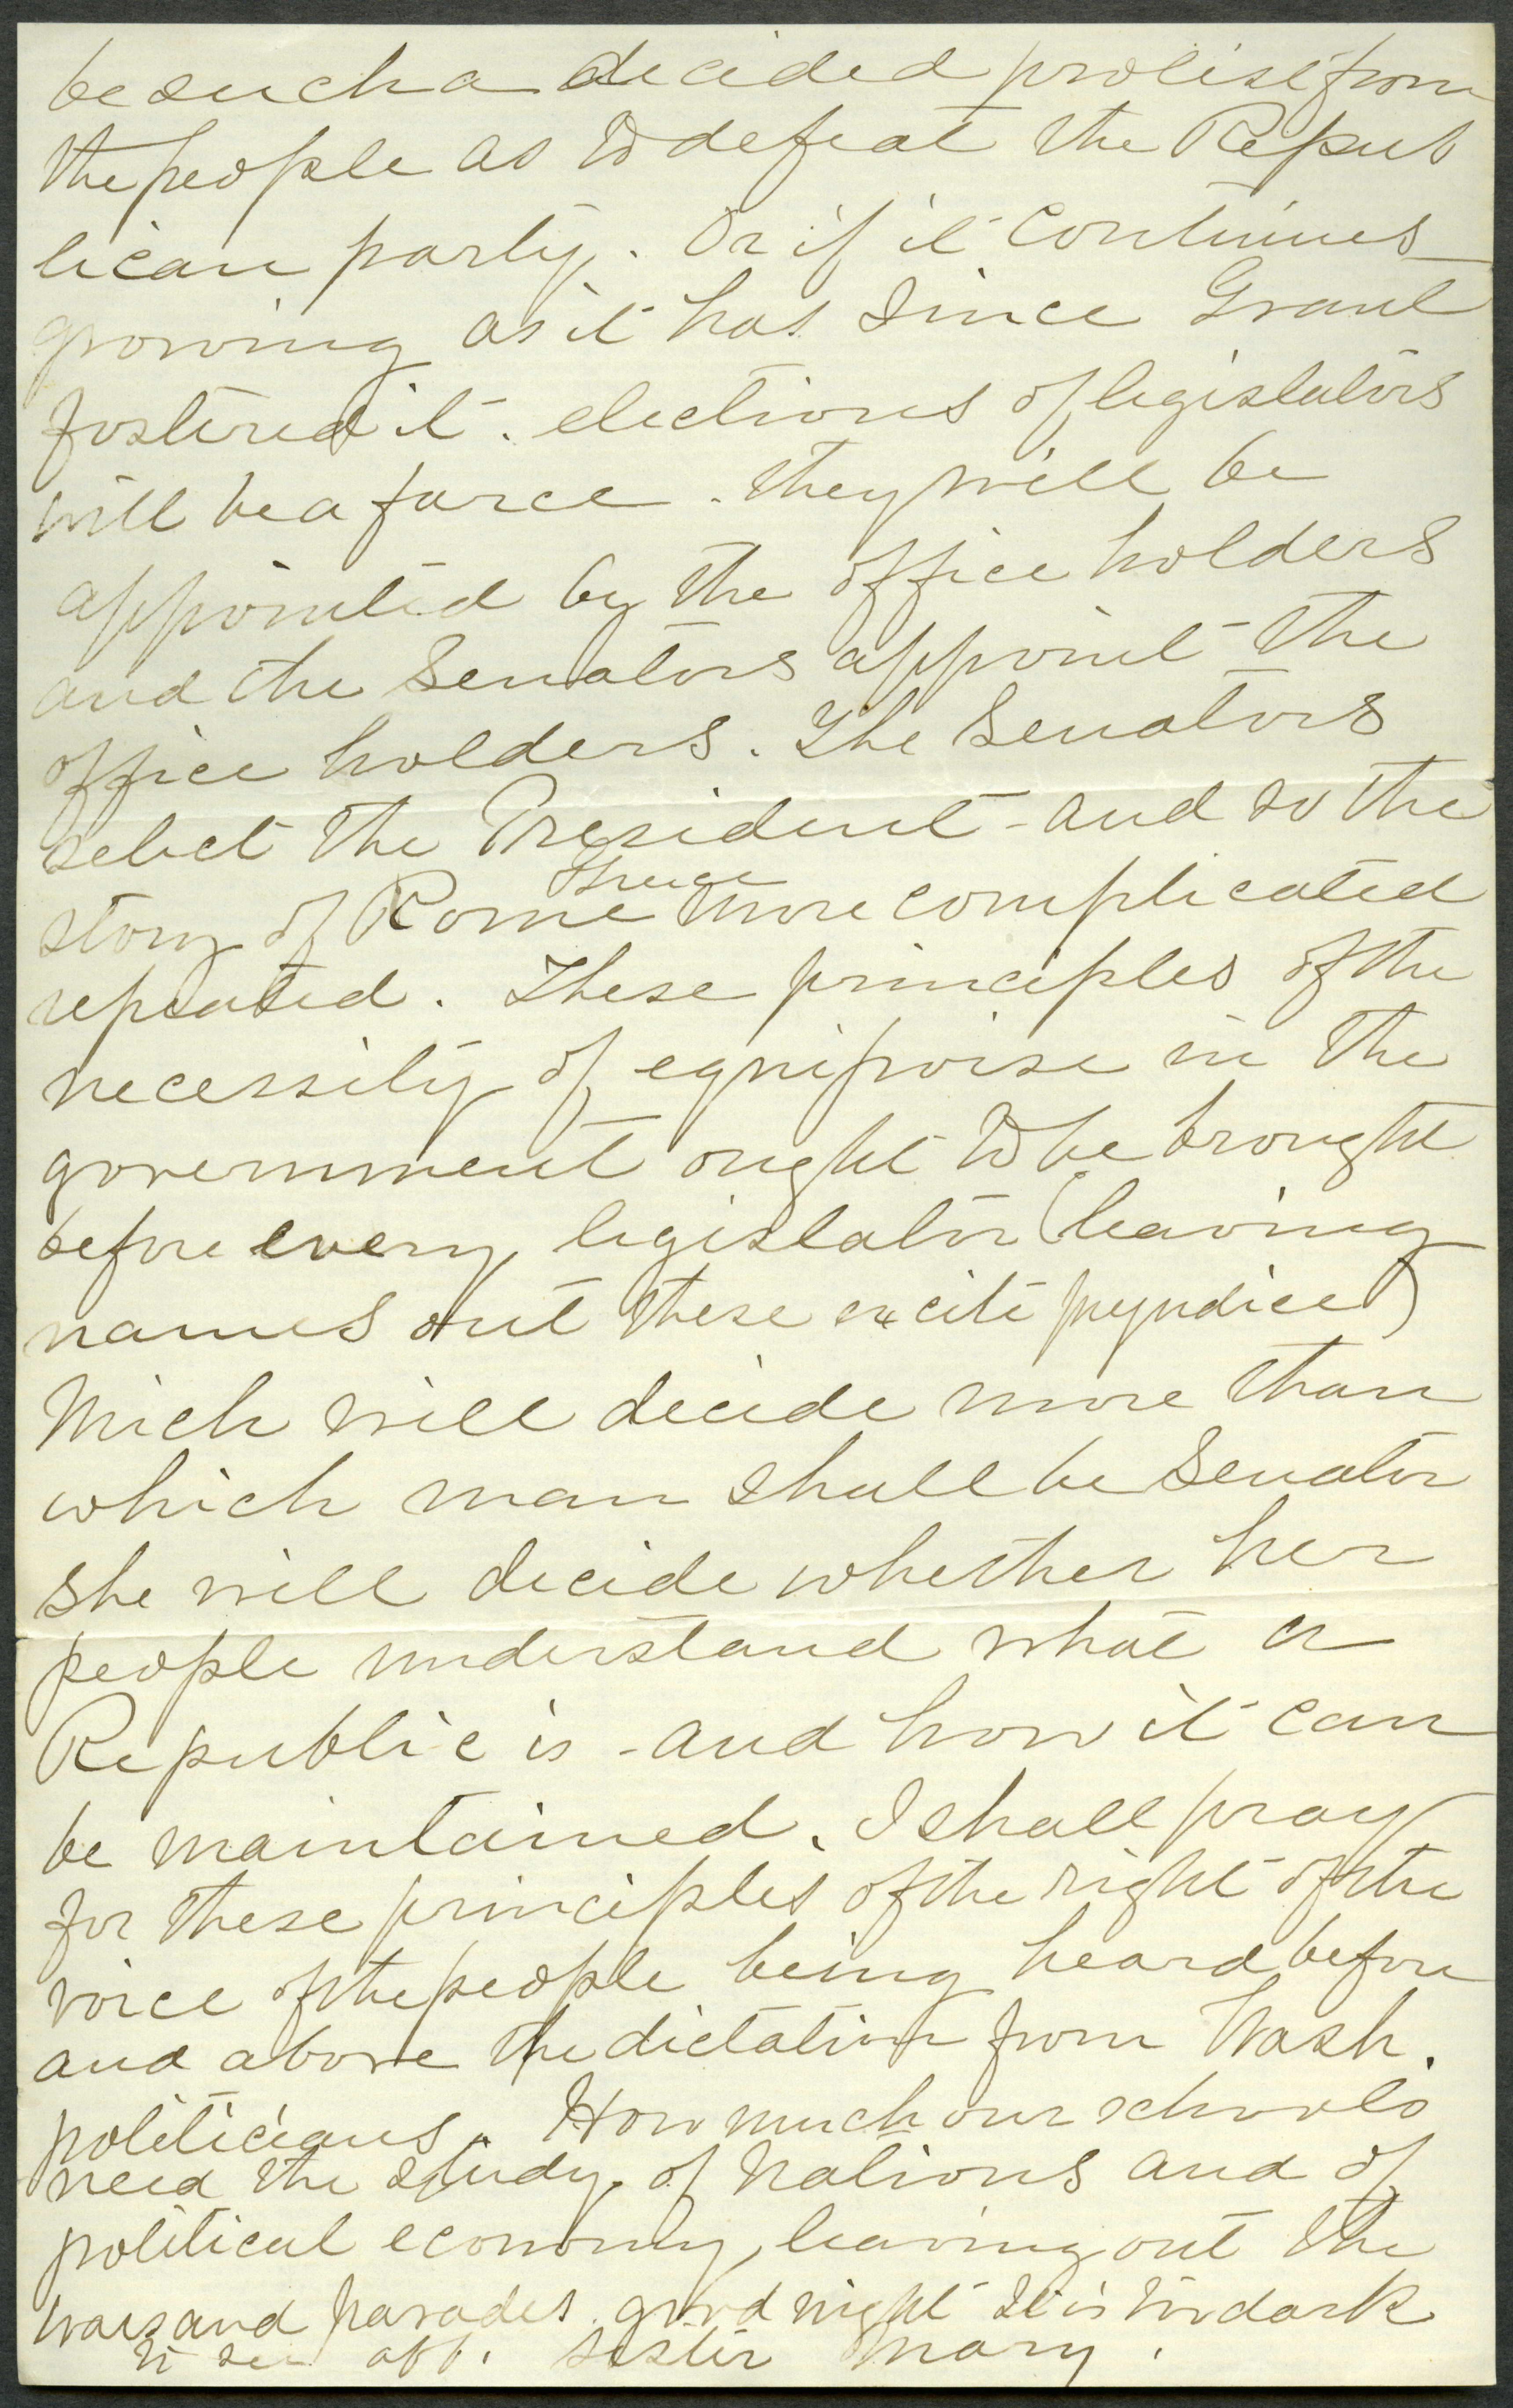 be such a decided protest from
the people as to defeat the Repub
lican party. Or if it continues
growing as it has since Grant
fostered it. elections of legislators
will be a farce. they will be
appointed by the office holders
and the Senators appoint the
office holders. The Senators
select the President - and so the
story of Rome more complicated
repeated. These principles of the
necessity of equipoise in the
government ought to be brought
before every legislator (leaving
names out these excite prejudice)
Mich will decide more than
which man shall be Senator
she will decide whether her
people understand what a
Republic is - and how it can
be maintained. I shall pray
for these principles of the right of the
voice of the people being heard before
and above the dictation from Wash.
politicians. How much our schools
need the study of Nations and of
political economy, leaving out the
wars and parades. good night It is too dark
to see aff. sister Mary.